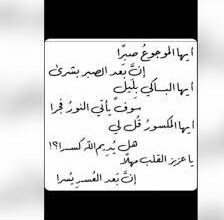 أيها الموجوع صبرًا
إنَّ بَعد الصبر بشرىٰ
أيها البـاكي بلَيل
سوفَ يأتي النورُ فجرا
أيها المكسورُ قل لي
هل يُديم الله كسرا؟!
يا عزيز القلب مهلًا
إنَّ بَعد العُسرِ يُسرا